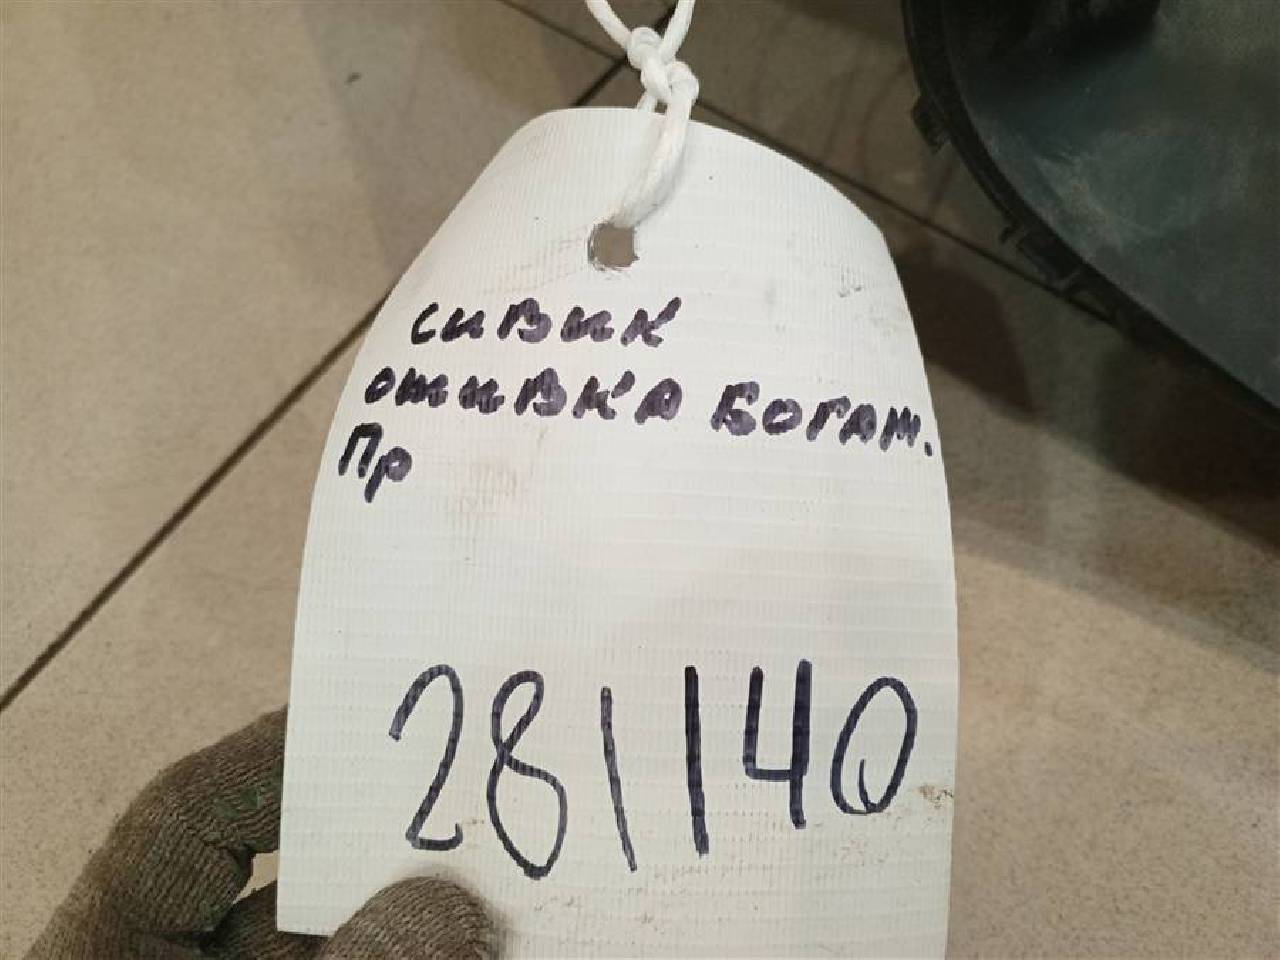 сивик
ошивка Богаж.
Пр
281140